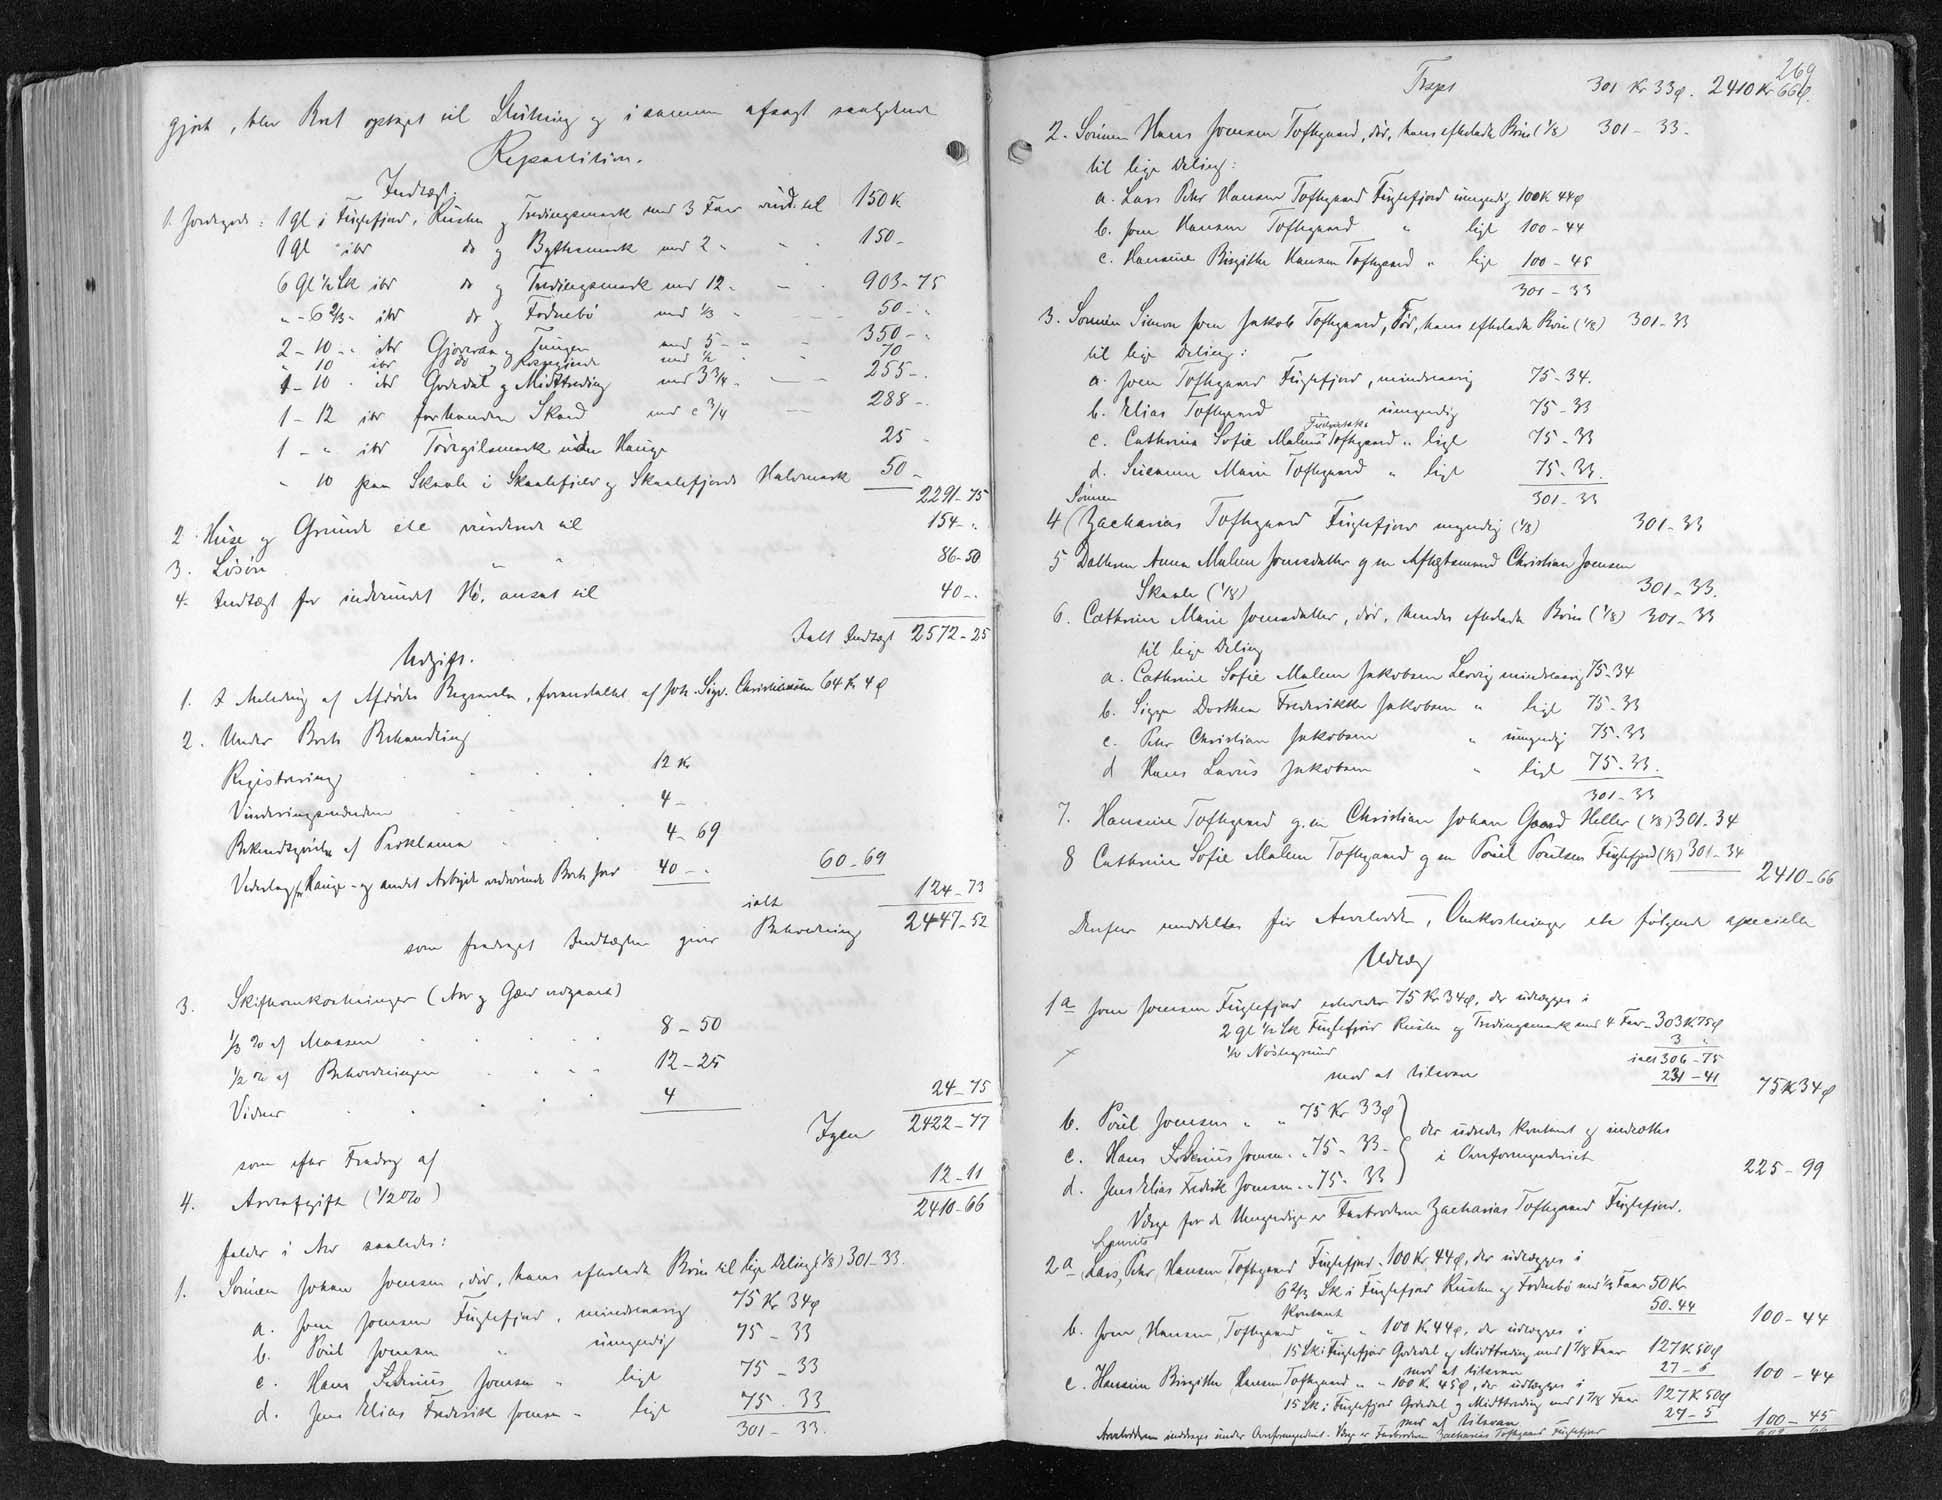 gjort, blev Boet optaget til Slutning og i samme afsagt saalydende
Repartition.
Indtægt.
1. Jordegods: 1 gl i Fuglefjord, Rusten og Tredingsmark med 3 Faar vurd. til 150 K
1 gl ibr do og Bythsmark med 2 " - - 150 -
6 gl ½ Sk ibr do og Tredingsmark med 12 " - - 903 - 75
" - 6 2/3 " ibr do og Fodnebö med 1/3 " - - 50 - "
2 - 10 - " ibr Gjoveraa og Tungen med 5 - " - - 350 - "
" 10 ibr do og med ½ - - 70
1 - 10 " ibr Godedal og Midttreding med 3 3/4 " - - 255 - "
1 - 12 ibr forhanden Skard med c 3/4 - 288 -
1 - " ibr Torgilsmark uden Hauge 25 -
" 10 paa Skaale i Skaalefjeld og Skaalefjords Halvmark 50 -
2291 - 75
2. Huse og Grunde etc vurderede til 154 - "
3. Lösöre " " 86 - 50
4. Indtægt for indvundet Hö, ansat til 40 - "
Ialt Indtægt 2572 - 25
Udgift.
1. I Anledning af Afdødes Begravelse, foranstaltet af Joh. Sigv. Christiansen 64 Kr 4 ø
2. Under Boets Behandling
Registrering 12 Kr
Vurderingsmændene 4 -
Bekendtgjörelse af Proklama 4 - 69
Vederlag for Hauge- og andet Arbejde vedrörende Boets Jord 40 - " 60 - 69
ialt 124 - 73
som fradraget Indtægten giver Beholdning 2447 - 52
3. Skifteomkostninger (Arv og Gæld vedgaaet)
1/3 % af Massen 8 - 50
1/2 % af Beholdningen 12 - 25
Vidner 4 24 - 75
Igen 2422 - 77
som efter Fradrag af
4. Arveafgift (1/2 %) 12 - 11
2410 - 66
falder i Arv saaledes:
1. Sönnen Johan Joensen, död, hans efterladte Börn til lige Deling (1/8) 301 - 33
a. Joen Joensen Fuglefjord, mindreaarig 75 Kr 34 ø
b. Poul Joensen " umyndig 75 - 33
c. Hans Joensen " ligl 75 - 33
d. Jens Elias Frederik Joensen " ligl 75 - 33
301 - 33.
269
Trspt 301 Kr 33 ø. 2410 Kr 66 ø.
2. Sönnen Hans Joensen Toftegaard, död, hans efterladte Börn (1/8) 301 - 33 -
til lige Deling:
a. Lars Peter Hansen Toftegaard Fuglefjord umyndig 100 K 44 ø
b. Joen Hansen Toftegaard " ligl 100 - 44
c. Hansine Birgithe Hansen Toftegaard " ligl 100 - 45
301 - 33
3. Sönnen Simon Joen Jakob Toftegaard, död, hans efterladte Börn (1/8) 301 - 33
til lige Deling:
a. Joen Toftegaard Fuglefjord, mindreaarig 75 - 34.
b. Elias Toftegaard umyndig 75 - 33
Frederikke
c. Cathrina Sofie Malene Toftegaard " ligl 75 - 33
d. Susanne Marie Toftegaard " ligl 75 - 33.
301 - 33
Sönnen
4 (Zacharias Toftegaard Fuglefjord myndig (1/8) 301 - 33
5 Datteren Anna Malene Joensdatter g. m. Aftægtsmand Christian Joensen
Skaale (1/8) 301 - 33.
6. Cathrine Marie Joensdatter, död, hendes efterladte Börn (1/8) 301 - 33
til lige Deling
a. Cathrine Sofie Malene Jakobsen Lervig mindreaarig 75 - 34
b. Sigga Dorthea Frederikke Jakobsen " ligl 75 - 33
c. Peter Christian Jakobsen " umyndig 75 - 33
d Hans Jakobsen " ligl 75 - 33.
301 - 33
7. Hansine Toftegaard g. m. Christian Johan Gaard Heller (1/8) 301 - 34
8 Cathrine Sofie Malene Toftegaard g m Poul Poulsen Fuglefjord (1/8) 301 - 34
2410 - 66
Derfor meddeltes for Arvelodder, Omkostninger etc følgende specielle
Udlæg
1 a Joen Joensen Fuglefjord erholder 75 Kr 34 ø, der udlægges i
2 gl ½ Sk Fuglefjord Rusten og Tredingsmark med 4 Faar - 303 K 75 ø
½ Nöstegrund 3 "
ialt 306 - 75
mod at tilsvare 231 - 41 75 K 34 ø
b. Poul Joensen " " 75 Kr 33 ø
c. Hans Joensen " " 75 - 33 -
d. Jens Elias Fredrik Joensen " " 75 - 33
der udredes kontant og indsættes
i Overformynderiet 225 - 99
Værge for de Umyndige er Farbroderen Zacharias Toftegaard Fuglefjord.
2 a Lars Peter Hansen Toftegaard Fuglefjord - 100 Kr 44 ø, der udlægges i
6 2/3 Sk i Fuglefjord Rusten og Fodnebö med 1/3 Faar 50 Kr
kontant 50 - 44 100 - 44
b. Joen Hansen Toftegaard " " 100 K 44 ø, der udlægges i
15 Sk i Fuglefjord Godedal og Midttreding med 1 7/8 Faar 127 K 50 ø
mod at tilsvare 27 - 6 100 - 44
c. Hansine Birgithe Hansen Toftegaard " " 100 K 45 ø, der udlægges i
15 Sk i Fuglefjord Godedal og Midttreding med 1 7/8 Faar 127 K 50 ø
mod at tilsvare 27 - 5 100 - 45
Arvelodderne inddrages under Overformynderiet. Værge er Farbroderen Zacharias Toftegaard Fuglefjord